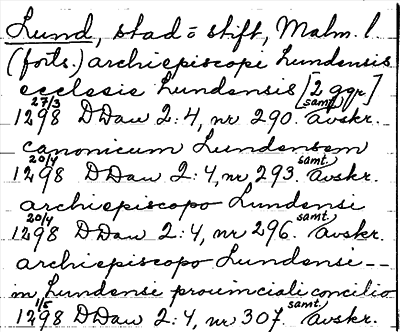 Lund, stad = stift, Malm. l
(forts.) archiepiscopi Lundensis
ecclesie Lundensis [2 ggr]
27/3 samt.
1298 DDan 2:4, nr 290. Avskr.
canonicum Lundensem
20/4 samt.
1298 DDan 2:4, nr 293. Avskr.
archiepiscopo Lundensi
20/4 samt.
1298 DDan 2:4, nr 296. Avskr.
archiepiscopo Lundense --
in Lundensi prouinciali concilio
1/5 samt.
1298 DDan 2:4, nr 307. Avskr.